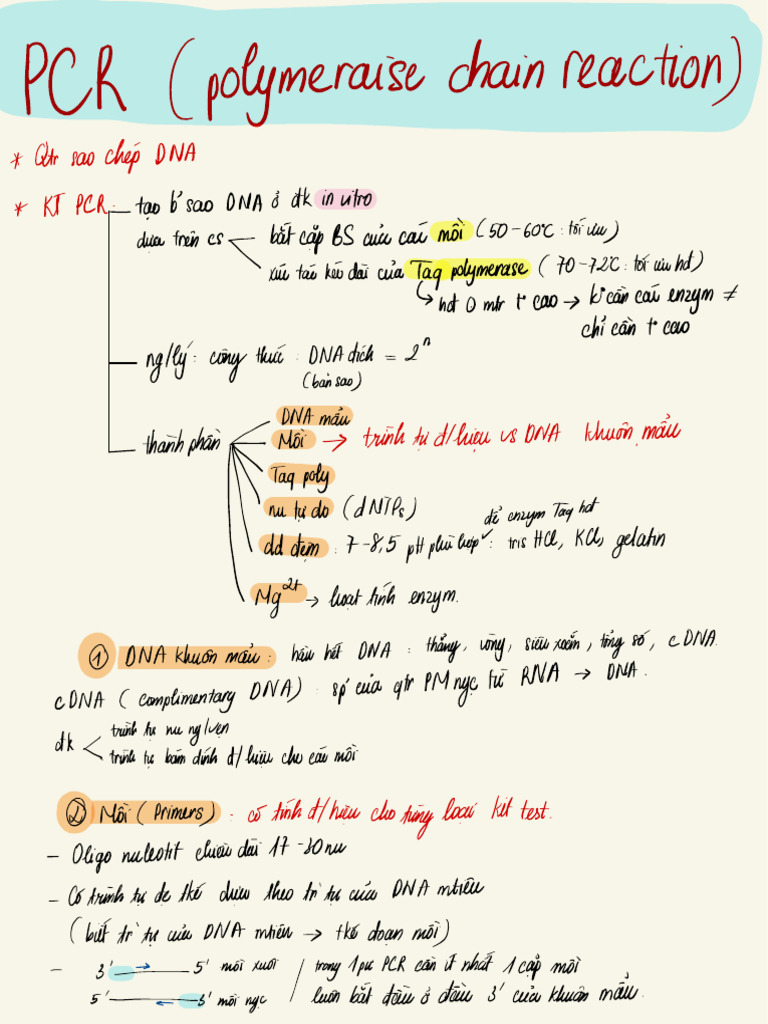 PCR (polymeraise chain reaction)
* Qtr sao chép DNA
* KT PCR: tạo b' sao DNA ở đk in vitro
dựa trên cs
bắt cặp BS của các mồi (50-60°C: tối ưu)
xúc tác kéo dài của Taq polymerase (70-72°C: tối ưu hđ)
hđ ở mtr t° cao → k° cần các enzym ≠
chỉ cần t° cao
ng/lý: công thức: DNA đích = 2ⁿ
(bản sao)
thành phần
DNA mẫu
Mồi → trình tự đ/hiệu vs DNA khuôn mẫu
Taq poly
nu tự do (dNTPs)
để enzym Taq hđ
dd đệm: 7-8,5 pH phù hợp: tris HCl, KCl, gelatin
Mg²⁺ → hoạt tính enzym.
① DNA khuôn mẫu: hầu hết DNA: thẳng, vòng, siêu xoắn, tổng số, cDNA.
cDNA (complimentary DNA): sp' của qtr PM ngc từ RNA → DNA.
đk
trình tự nu ng/vẹn
trình tự bám dính đ/hiệu cho các mồi
② Mồi (Primers): có tính đ/hiệu cho từng loại kit test.
- Oligo nuleotit chiều dài 17-30nu
- Có trình tự đc tkế dựa theo trì tự của DNA mtiêu
(biết trì tự của DNA mtiêu → tkế đoạn mồi)
- 3' 5' mồi xuôi / trong 1 pư PCR cần ít nhất 1 cặp mồi
5' 3' mồi ngc / luôn bắt đầu ở đầu 3' của khuôn mẫu.